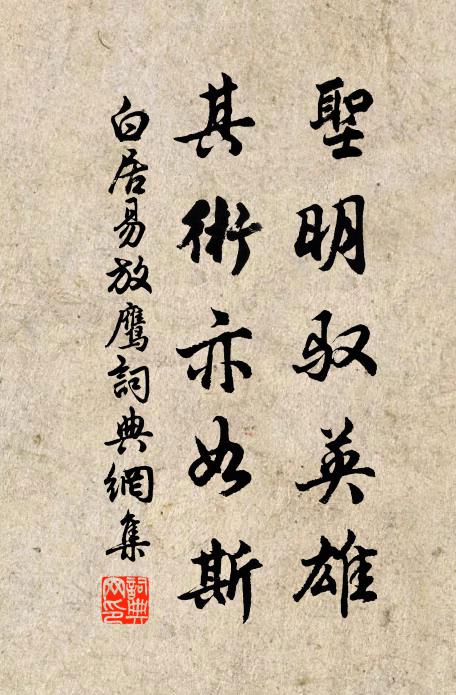 聖明馭英雄
其術亦如斯
白居易放鷹詞典網集
詞典網印